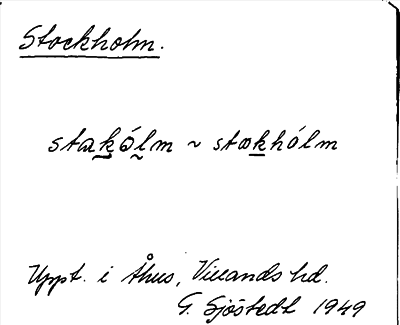 Stockholm.
stakólm ~ stækhólm
Uppt. i Åhus, Villands hd.
G. Sjöstedt 1949